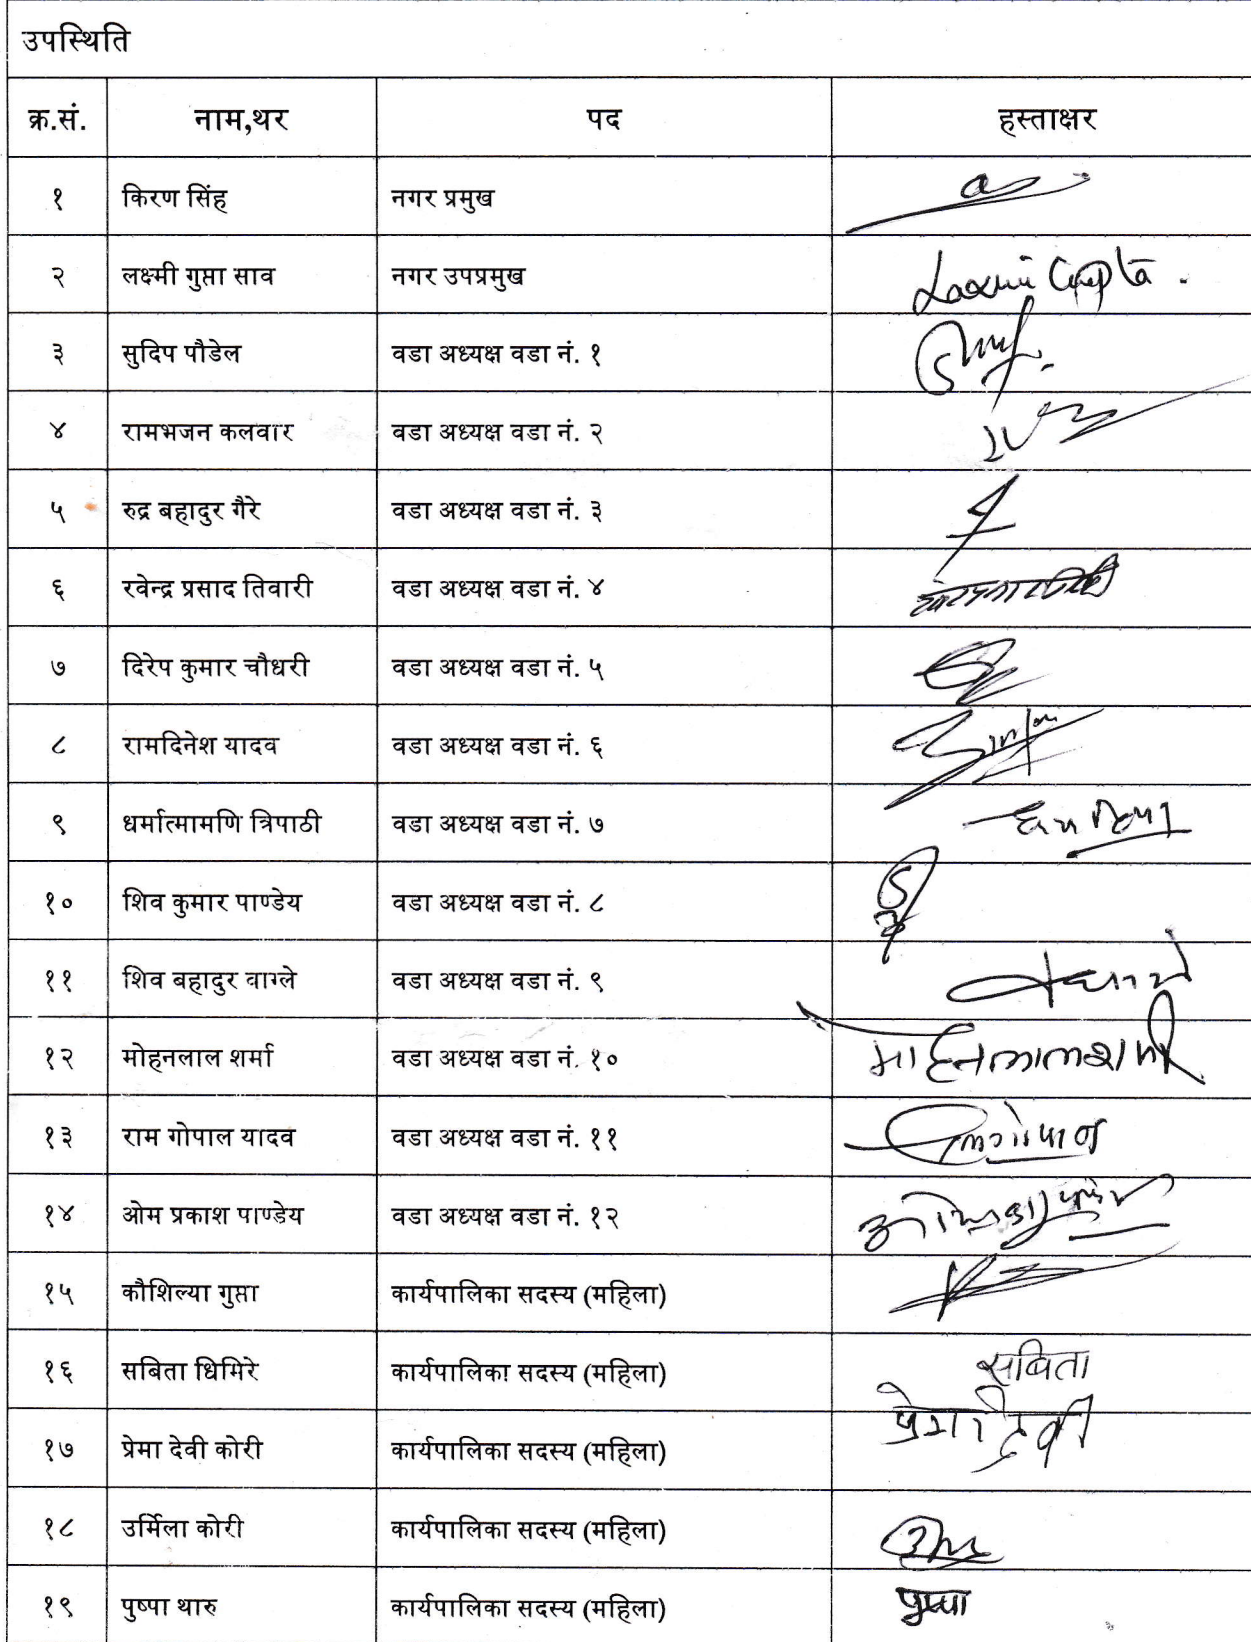 उपस्थिति
क्र.सं. नाम,थर पद हस्ताक्षर
१ किरण सिंह नगर प्रमुख
२ लक्ष्मी गुप्ता साव नगर उपप्रमुख Laxmi Gupta.
३ सुदिप पौडेल वडा अध्यक्ष वडा नं. १
४ रामभजन कलवार वडा अध्यक्ष वडा नं. २
५ रुद्र बहादुर गैरे वडा अध्यक्ष वडा नं. ३
६ रवेन्द्र प्रसाद तिवारी वडा अध्यक्ष वडा नं. ४
७ दिरेप कुमार चौधरी वडा अध्यक्ष वडा नं. ५
८ रामदिनेश यादव वडा अध्यक्ष वडा नं. ६
९ धर्मात्मामणि त्रिपाठी वडा अध्यक्ष वडा नं. ७
१० शिव कुमार पाण्डेय वडा अध्यक्ष वडा नं. ८
११ शिव बहादुर वाग्ले वडा अध्यक्ष वडा नं. ९
१२ मोहनलाल शर्मा वडा अध्यक्ष वडा नं. १० मोहनलाल शर्मा
१३ राम गोपाल यादव वडा अध्यक्ष वडा नं. ११
१४ ओम प्रकाश पाण्डेय वडा अध्यक्ष वडा नं. १२
१५ कौशिल्या गुप्ता कार्यपालिका सदस्य (महिला)
१६ सबिता घिमिरे कार्यपालिका सदस्य (महिला) सबिता
१७ प्रेमा देवी कोरी कार्यपालिका सदस्य (महिला) प्रेमा देवी
१८ उर्मिला कोरी कार्यपालिका सदस्य (महिला)
१९ पुष्पा थारु कार्यपालिका सदस्य (महिला) पुष्पा